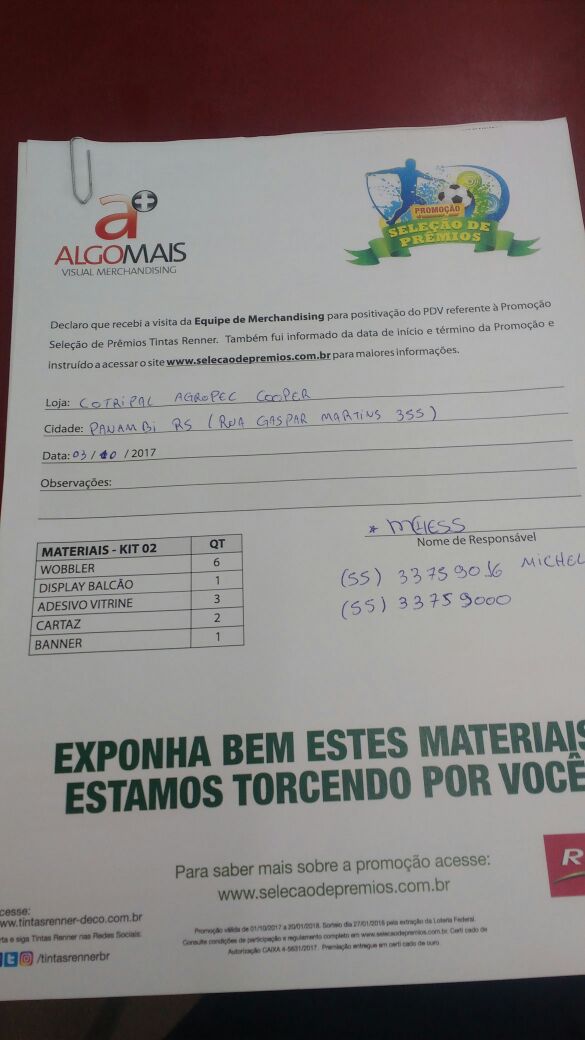 a+
ALGOMAIS
VISUAL MERCHANDISING
PROMOÇÃO
SELEÇÃO DE
PRÊMIOS
Declaro que recebi a visita da Equipe de Merchandising para positivação do PDV referente à Promoção
Seleção de Prêmios Tintas Renner. Também fui informado da data de início e término da Promoção e
instruído a acessar o site www.selecaodepremios.com.br para maiores informações.
Loja: COTRIPAL AGROPEC COOPER
Cidade: PANAMBI RS (RUA GASPAR MARTINS 355)
Data: 03/10/2017
Observações:
* MCHESS
Nome de Responsável
(55) 3375 9016 MICHEL
(55) 3375 9000
MATERIAIS - KIT 02 QT
WOBBLER 6
DISPLAY BALCÃO 1
ADESIVO VITRINE 3
CARTAZ 2
BANNER 1
EXPONHA BEM ESTES MATERIAIS
ESTAMOS TORCENDO POR VOCÊ
Para saber mais sobre a promoção acesse:
www.selecaodepremios.com.br
R
cesse:
ww.tintasrenner-deco.com.br
rta e siga Tintas Renner nas Redes Sociais:
/tintasrennerbr
Promoção válida de 01/10/2017 a 20/01/2018. Sorteio dia 27/01/2018 pela extração da Loteria Federal.
Consulte condições de participação e regulamento completo em www.selecaodepremios.com.br. Certificado de
Autorização CAIXA 4-5631/2017. Premiação entregue em certificado de ouro.